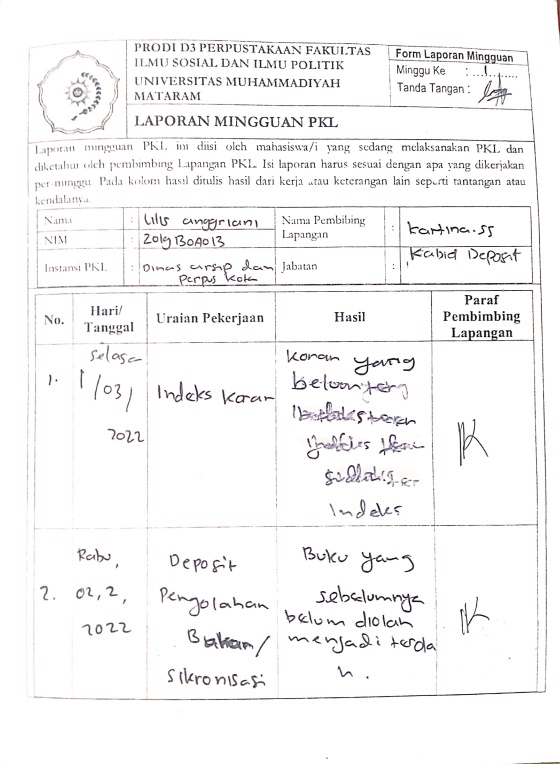 PRODI D3 PERPUSTAKAAN FAKULTAS
ILMU SOSIAL DAN ILMU POLITIK
UNIVERSITAS MUHAMMADIYAH
MATARAM
Form Laporan Mingguan
Minggu Ke : ...1.......
Tanda Tangan :
LAPORAN MINGGUAN PKL
Laporan mingguan PKL ini diisi oleh mahasiswa/i yang sedang melaksanakan PKL dan
diketahui oleh pembimbing Lapangan PKL. Isi laporan harus sesuai dengan apa yang dikerjakan
per-minggu. Pada kolom hasil ditulis hasil dari kerja atau keterangan lain seperti tantangan atau
kendalanya.
Nama : Lilis anggriani
Nama Pembibing Lapangan : kartina.ss
NIM : 2019B0A013
Instansi PKL : Dinas arsip dan Perpus kota
Jabatan : Kabid Deposit
No.
Hari/ Tanggal
Uraian Pekerjaan
Hasil
Paraf Pembimbing Lapangan
1.
Selasa
1/03/
2022
Indeks koran
koran yang
Indeks
2.
Rabu,
02,2,
2022
Deposit
Pengolahan
/
Sikronisasi
Buku yang
sebelumnya
belum diolah
menjadi terda
h.